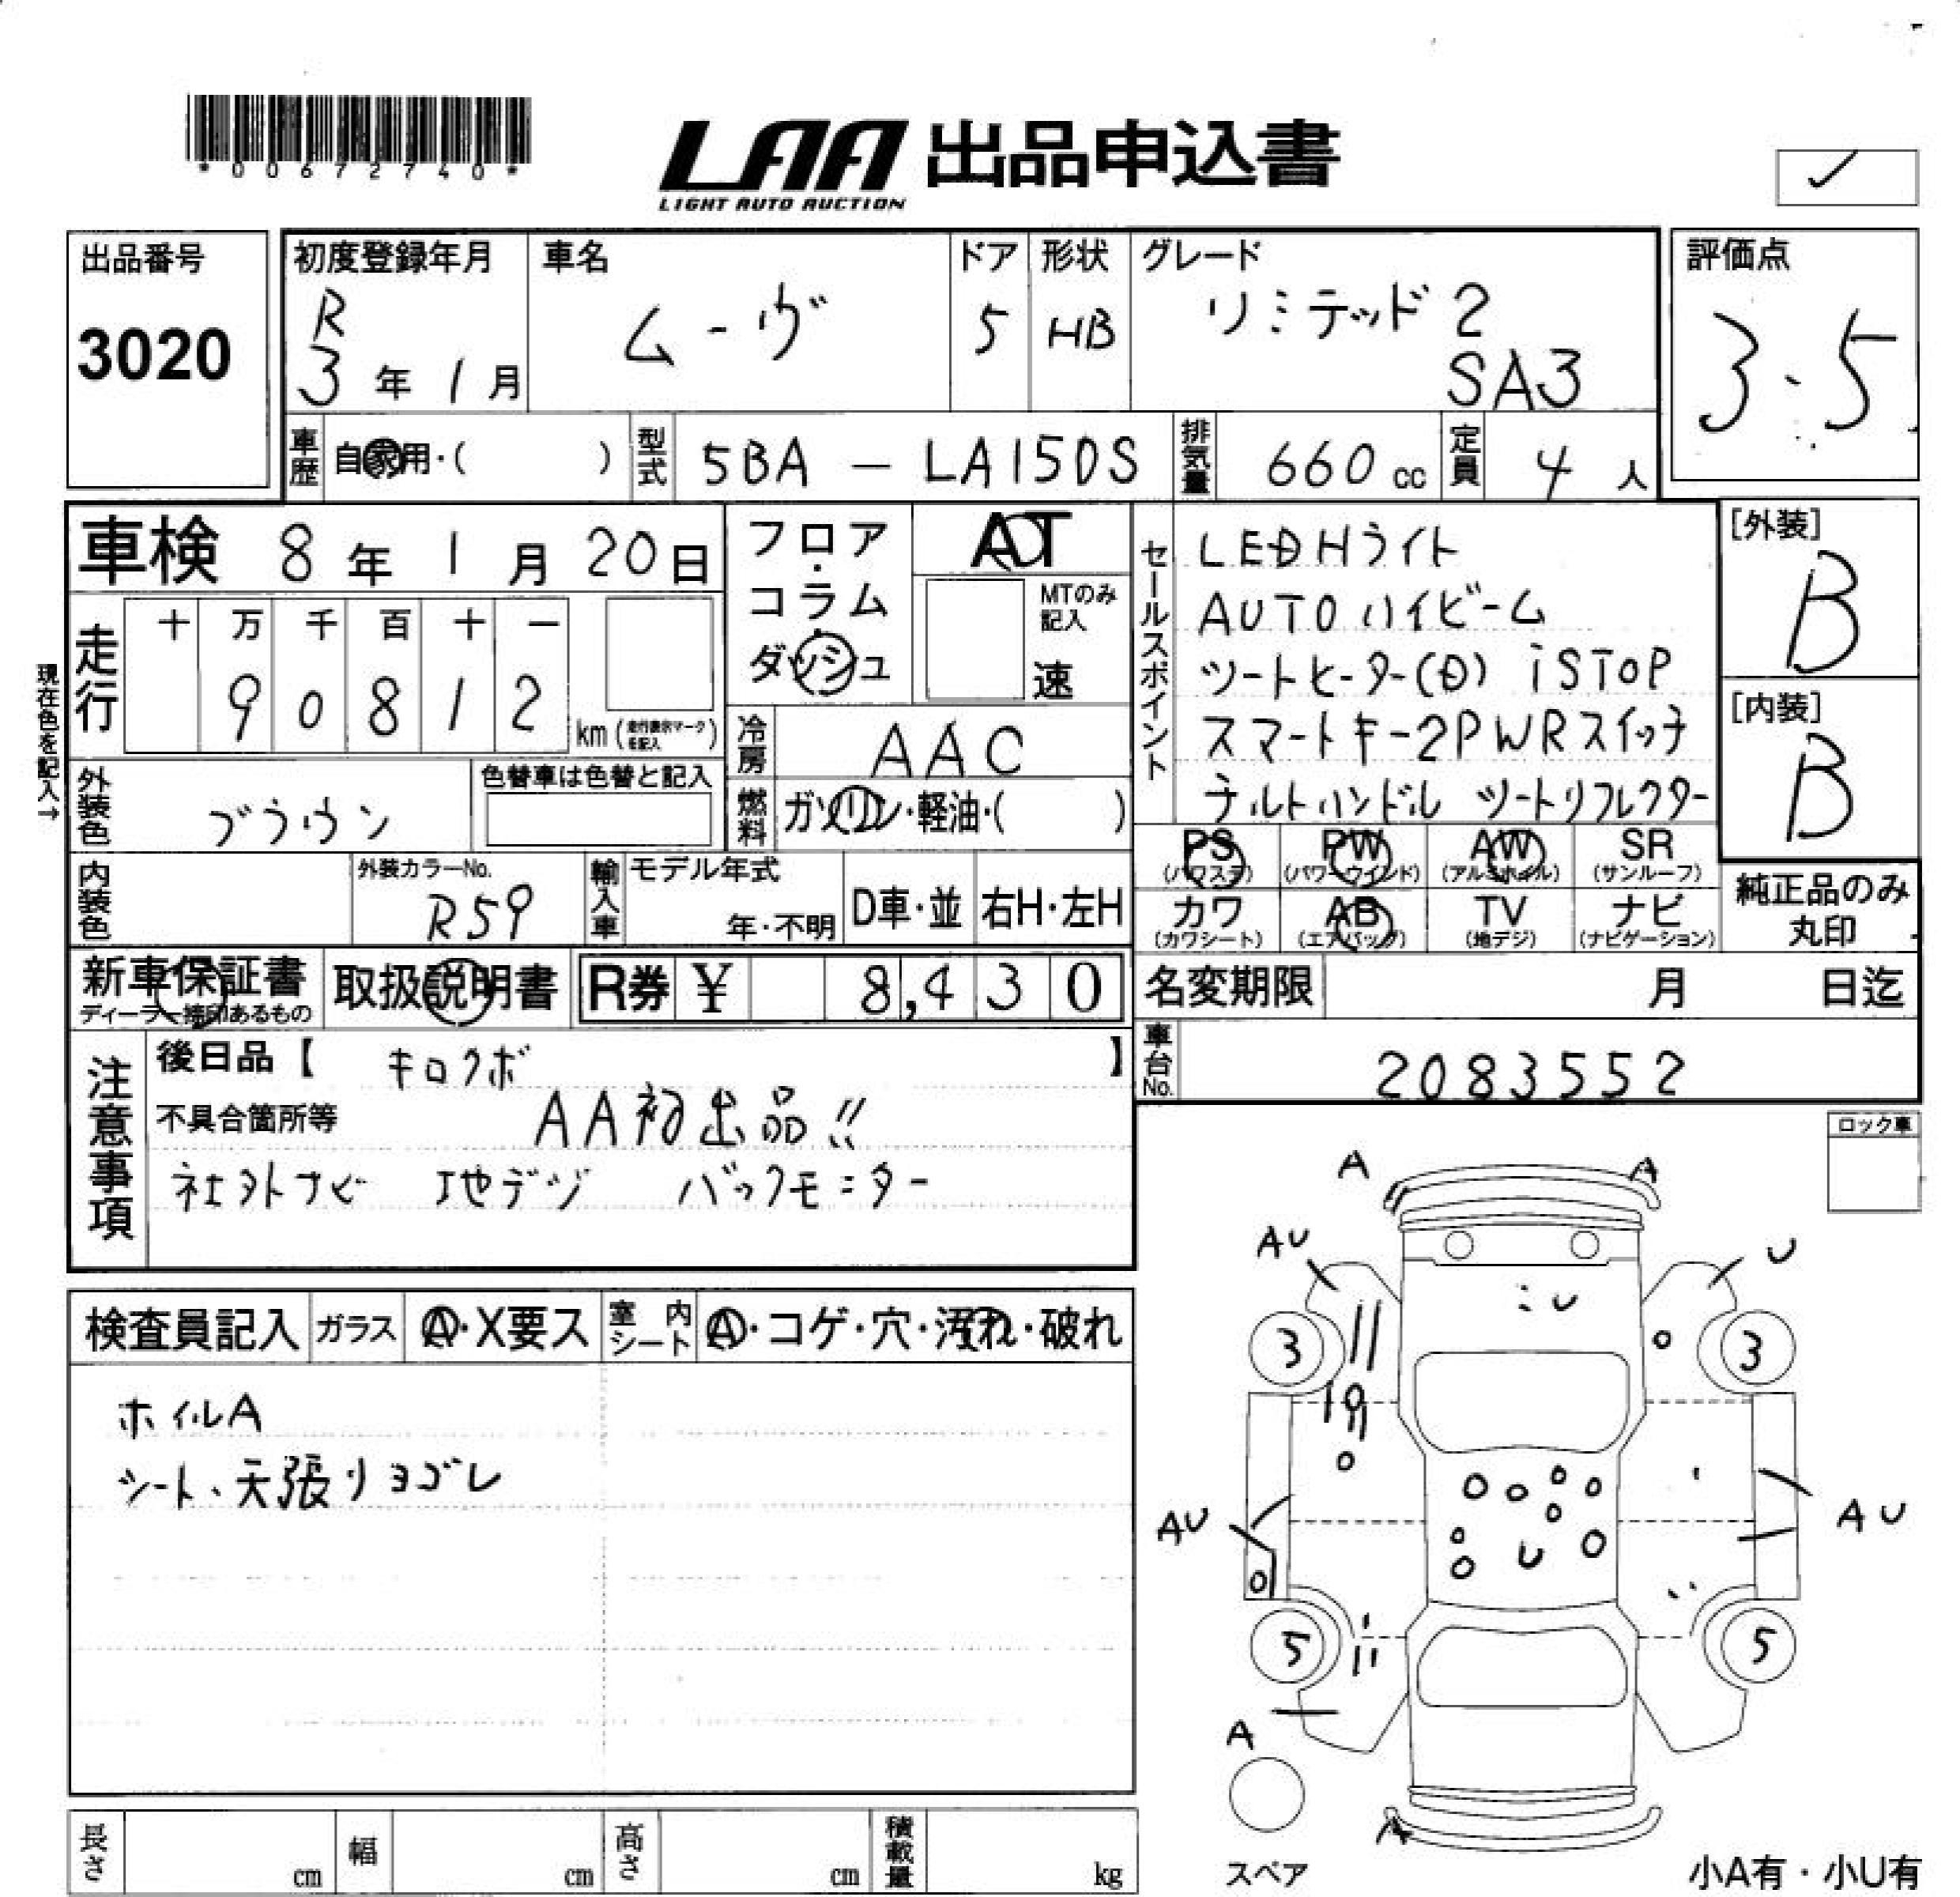 *00672740*
LAA 出品申込書
LIGHT AUTO AUCTION
出品番号
3020
初度登録年月
R
3年1月
車名
ムーヴ
ドア
5
形状
HB
グレード
リミテッド2
SA3
評価点
3.5
車歴
自家用・( )
型式
5BA - LA150S
排気量
660cc
定員
4人
車検 8年1月20日
フロア・コラム・ダッシュ
AT
MTのみ記入
速
セールスポイント
LEDHライト
AUTOハイビーム
シートヒーター(D) iSTOP
スマートキー2PWRスイッチ
チルトハンドル シートリフレクター
[外装]
B
[内装]
B
現在色を記入→
走行
十 万 千 百 十 一
9 0 8 1 2
km(走行表示マークを記入)
冷房
AAC
燃料
ガソリン・軽油・( )
外装色
ブラウン
色替車は色替と記入
内装色
外装カラーNo.
R59
輸入車
モデル年式
年・不明
D車・並
右H・左H
PS (パワステ)
PW (パワーウインド)
AW (アルミホイル)
SR (サンルーフ)
カワ (カワシート)
AB (エアバック)
TV (地デジ)
ナビ (ナビゲーション)
純正品のみ
丸印
新車保証書
ディーラー捺印あるもの
取扱説明書
R券 ¥ 8,430
名変期限 月 日迄
注意事項
後日品【 キロクボ 】
不具合箇所等
AA初出品!!
社外ナビ 地デジ バックモニター
車台No.
2083552
ロック車
検査員記入
ガラス
A・X要ス
室内シート
A・コゲ・穴・汚れ・破れ
ホイルA
シート、天張りヨゴレ
A
A
AU
U
U
3
3
AU
AU
U
5
5
A
A
スペア
小A有・小U有
長さ cm
幅 cm
高さ cm
積載量 kg